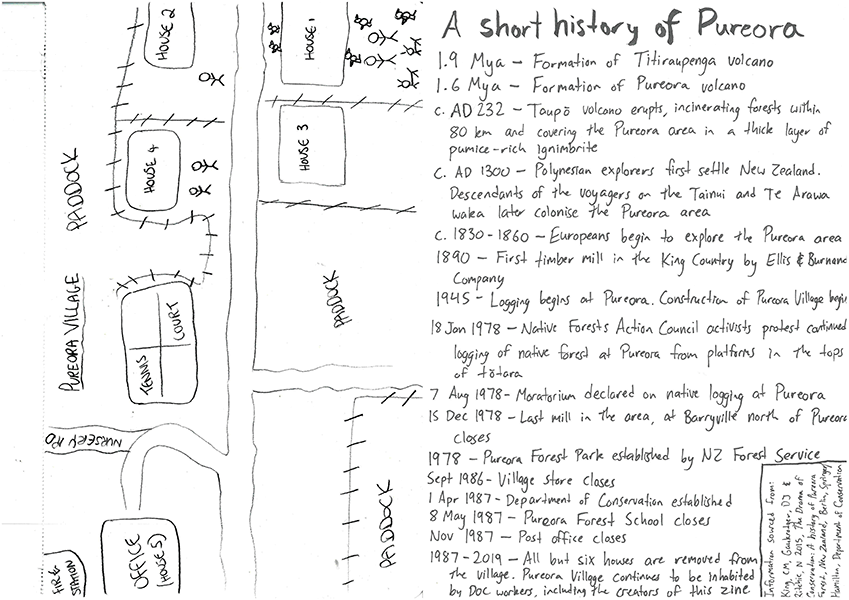 HOUSE 2
HOUSE 1
HOUSE 4
HOUSE 3
PADDOCK
PUREORA VILLAGE
TENNIS
COURT
PADDOCK
NURSERY RD
OFFICE
(HOUSE 5)
FIRE
STATION
PADDOCK
A short history of Pureora
1.9 Mya – Formation of Titiraupenga volcano
1.6 Mya – Formation of Pureora volcano
c. AD 232 – Taupō volcano erupts, incinerating forests within
80 km and covering the Pureora area in a thick layer of
pumice-rich ignimbrite
C. AD 1300 – Polynesian explorers first settle New Zealand.
Descendants of the voyagers on the Tainui and Te Arawa
waka later colonise the Pureora area
c. 1830-1860 – Europeans begin to explore the Pureora area
1890 – First timber mill in the King Country by Ellis & Burnand
Company
1945 - Logging begins at Pureora. Construction of Pureora Village begin
18 Jan 1978 – Native Forests Action Council activists protest continued
logging of native forest at Pureora from platforms in the tops
of tōtara
7 Aug 1978 - Moratorium declared on native logging at Pureora
15 Dec 1978 - Last mill in the area, at Barryville north of Pureora
closes
1978 - Pureora Forest Park established by NZ Forest Service
Sept 1986 - Village store closes
1 Apr 1987 - Department of Conservation established
8 May 1987 - Pureora Forest School closes
Nov 1987 - Post office closes
1987-2019 – All but six houses are removed from
the village. Pureora Village continues to be inhabited
by DOC workers, including the creators of this zine
Information sourced from:
King, CM, Gaukrodger, DJ &
Ritchie N 2015, The Drama of
Conservation: A history of Pureora
Forest, New Zealand, Berlin, Springer
Hamilton, Department of Conservation